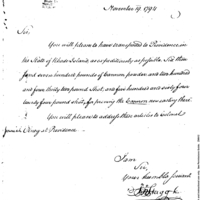 November 19 1794
Sir,
You will please to have transported to Providence in
the State of Rhode Island as expeditiously as possible Six thou
sand seven hundred pounds of Cannon powder and two hundred
and four thirty two pound Shot, and five hundred and sixty four
twenty four pound shot for proving the Cannon now casting there
You will please to address these articles to Colonel
Jeremiah Olney at Providence.
I am
Sir,
Your humble servant